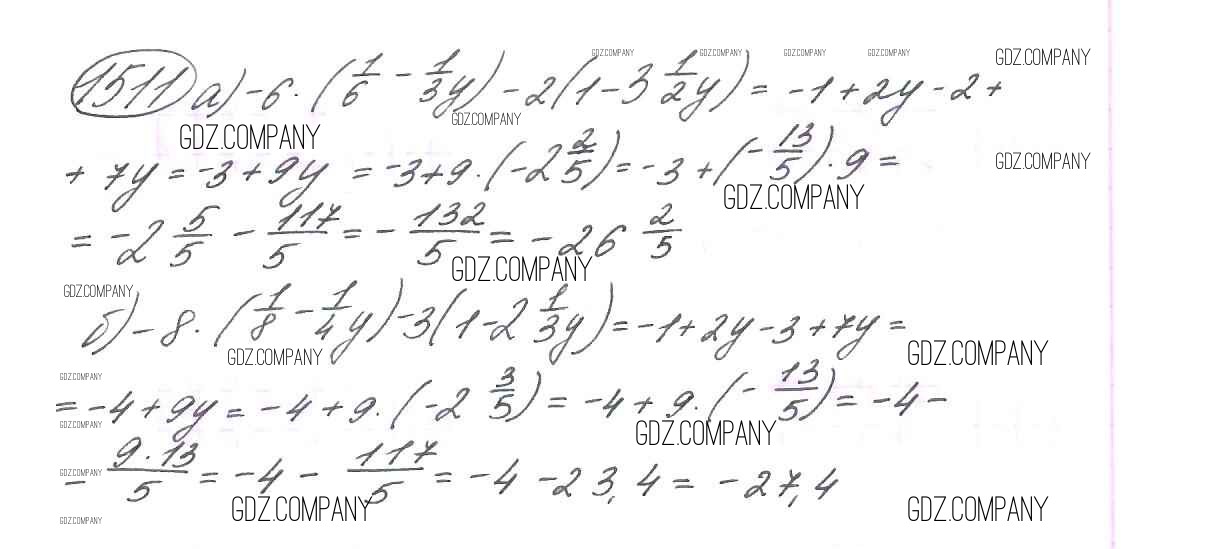 1511 а) -6 · (1/6 - 1/3 y) - 2(1 - 3 1/2 y) = -1 + 2y - 2 +
+ 7y = -3 + 9y = -3 + 9 · (-2 2/5) = -3 + (-13/5) · 9 =
= -2 5/5 - 117/5 = -132/5 = -26 2/5
б) -8 · (1/8 - 1/4 y) - 3(1 - 2 1/3 y) = -1 + 2y - 3 + 7y =
= -4 + 9y = -4 + 9 · (-2 3/5) = -4 + 9 · (-13/5) = -4 -
- 9 · 13/5 = -4 - 117/5 = -4 - 23,4 = -27,4
GDZ.COMPANY GDZ.COMPANY GDZ.COMPANY GDZ.COMPANY GDZ.COMPANY
GDZ.COMPANY GDZ.COMPANY
GDZ.COMPANY GDZ.COMPANY
GDZ.COMPANY
GDZ.COMPANY
GDZ.COMPANY GDZ.COMPANY
GDZ.COMPANY
GDZ.COMPANY GDZ.COMPANY
GDZ.COMPANY
GDZ.COMPANY GDZ.COMPANY
GDZ.COMPANY